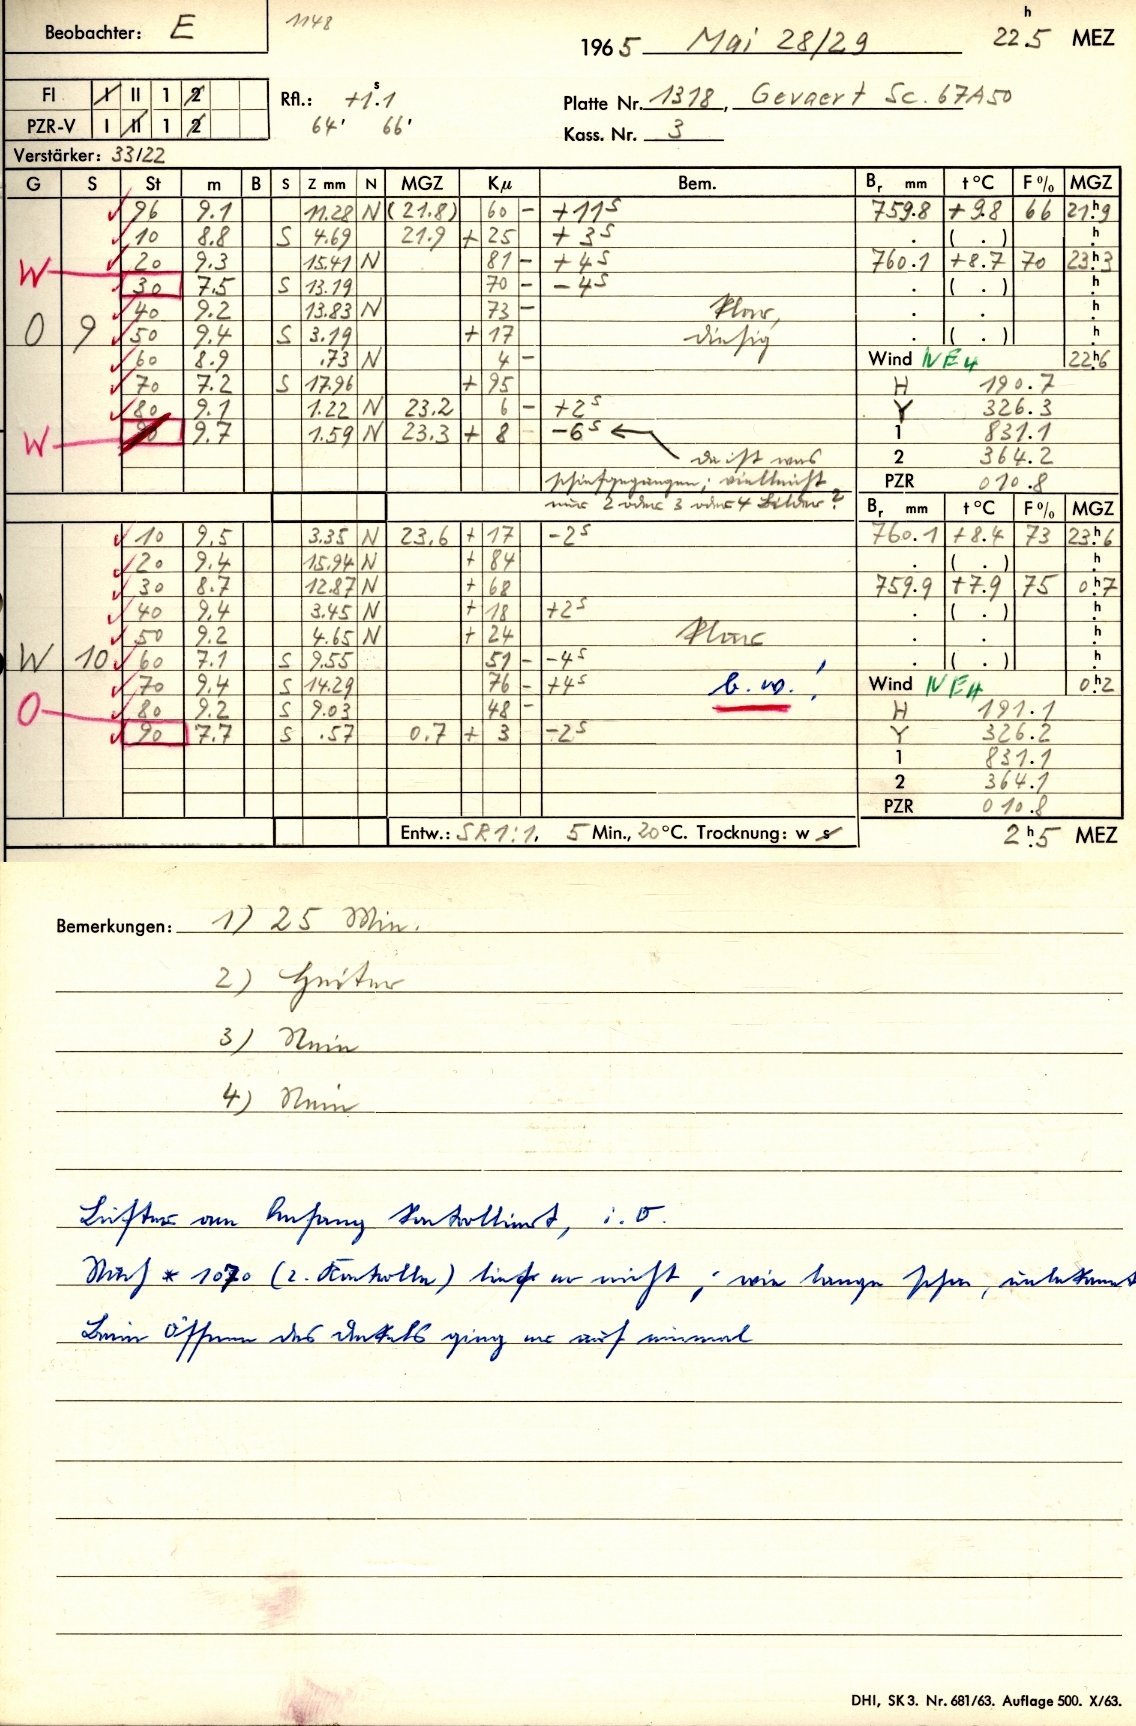 Beobachter: E
1148
1965 Mai 28/29 22h.5 MEZ
FI I II 1 2
PZR-V I II 1 2
Rfl.: +1s.1
64' 66'
Platte Nr. 1318, Gevaert Sc. 67A50
Kass. Nr. 3
Verstärker: 33/22
G S St m B S Z mm N MGZ Kμ Bem. Br mm t°C F% MGZ
96 9.1 11.28 N (21.8) 60 - +11s 759.8 +9.8 66 21h.9
10 8.8 S 4.69 21.9 + 25 +3s . ( . ) h.
W 20 9.3 15.41 N 81 - +4s 760.1 +8.7 70 23h.3
30 7.5 S 13.19 70 - -4s . ( . ) h.
40 9.2 13.83 N 73 - Klar, . . h.
O 9 50 9.4 S 3.19 + 17 diesig . ( . ) h.
60 8.9 .73 N 4 - Wind NE4 22h.6
70 7.2 S 17.96 + 95 H 190.7
80 9.1 1.22 N 23.2 6 - +2s Y 326.3
W 90 9.7 1.59 N 23.3 + 8 -6s 1 831.1
da ist was 2 364.2
schiefgegangen; vielleicht PZR 010.8
nur 2 oder 3 oder 4 Bilder? Br mm t°C F% MGZ
10 9.5 3.35 N 23.6 + 17 -2s 760.1 +8.4 73 23h.6
20 9.4 15.94 N + 84 . ( . ) h.
30 8.7 12.87 N + 68 759.9 +7.9 75 0h.7
40 9.4 3.45 N + 18 +2s . ( . ) h.
50 9.2 4.65 N + 24 Klar . . h.
W 10 60 7.1 S 9.55 51 - -4s . ( . ) h.
70 9.4 S 14.29 76 - +4s b.w.! Wind NE4 0h.2
O 80 9.2 S 9.03 48 - H 191.1
90 7.7 S .57 0.7 + 3 -2s Y 326.2
1 831.1
2 364.1
PZR 010.8
Entw.: SR1:1, 5 Min., 20°C. Trocknung: w s 2h.5 MEZ
Bemerkungen: 1) 25 Min.
2) Heiter
3) Nein
4) Nein
Lüfter am Anfang kontrolliert, i.O.
Nach * 1070 (2. Kontrolle) lief er nicht; wie lange schon, unbekannt
Beim Öffnen des Deckels ging er auf einmal
DHI, SK3. Nr. 681/63. Auflage 500. X/63.